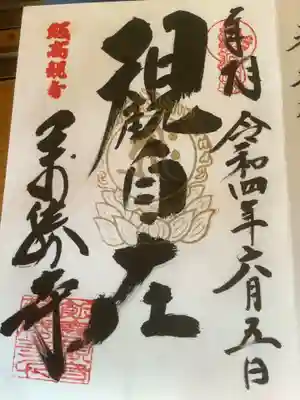 奉拝
令和四年六月五日
観自在
飯高観音
萬勝寺